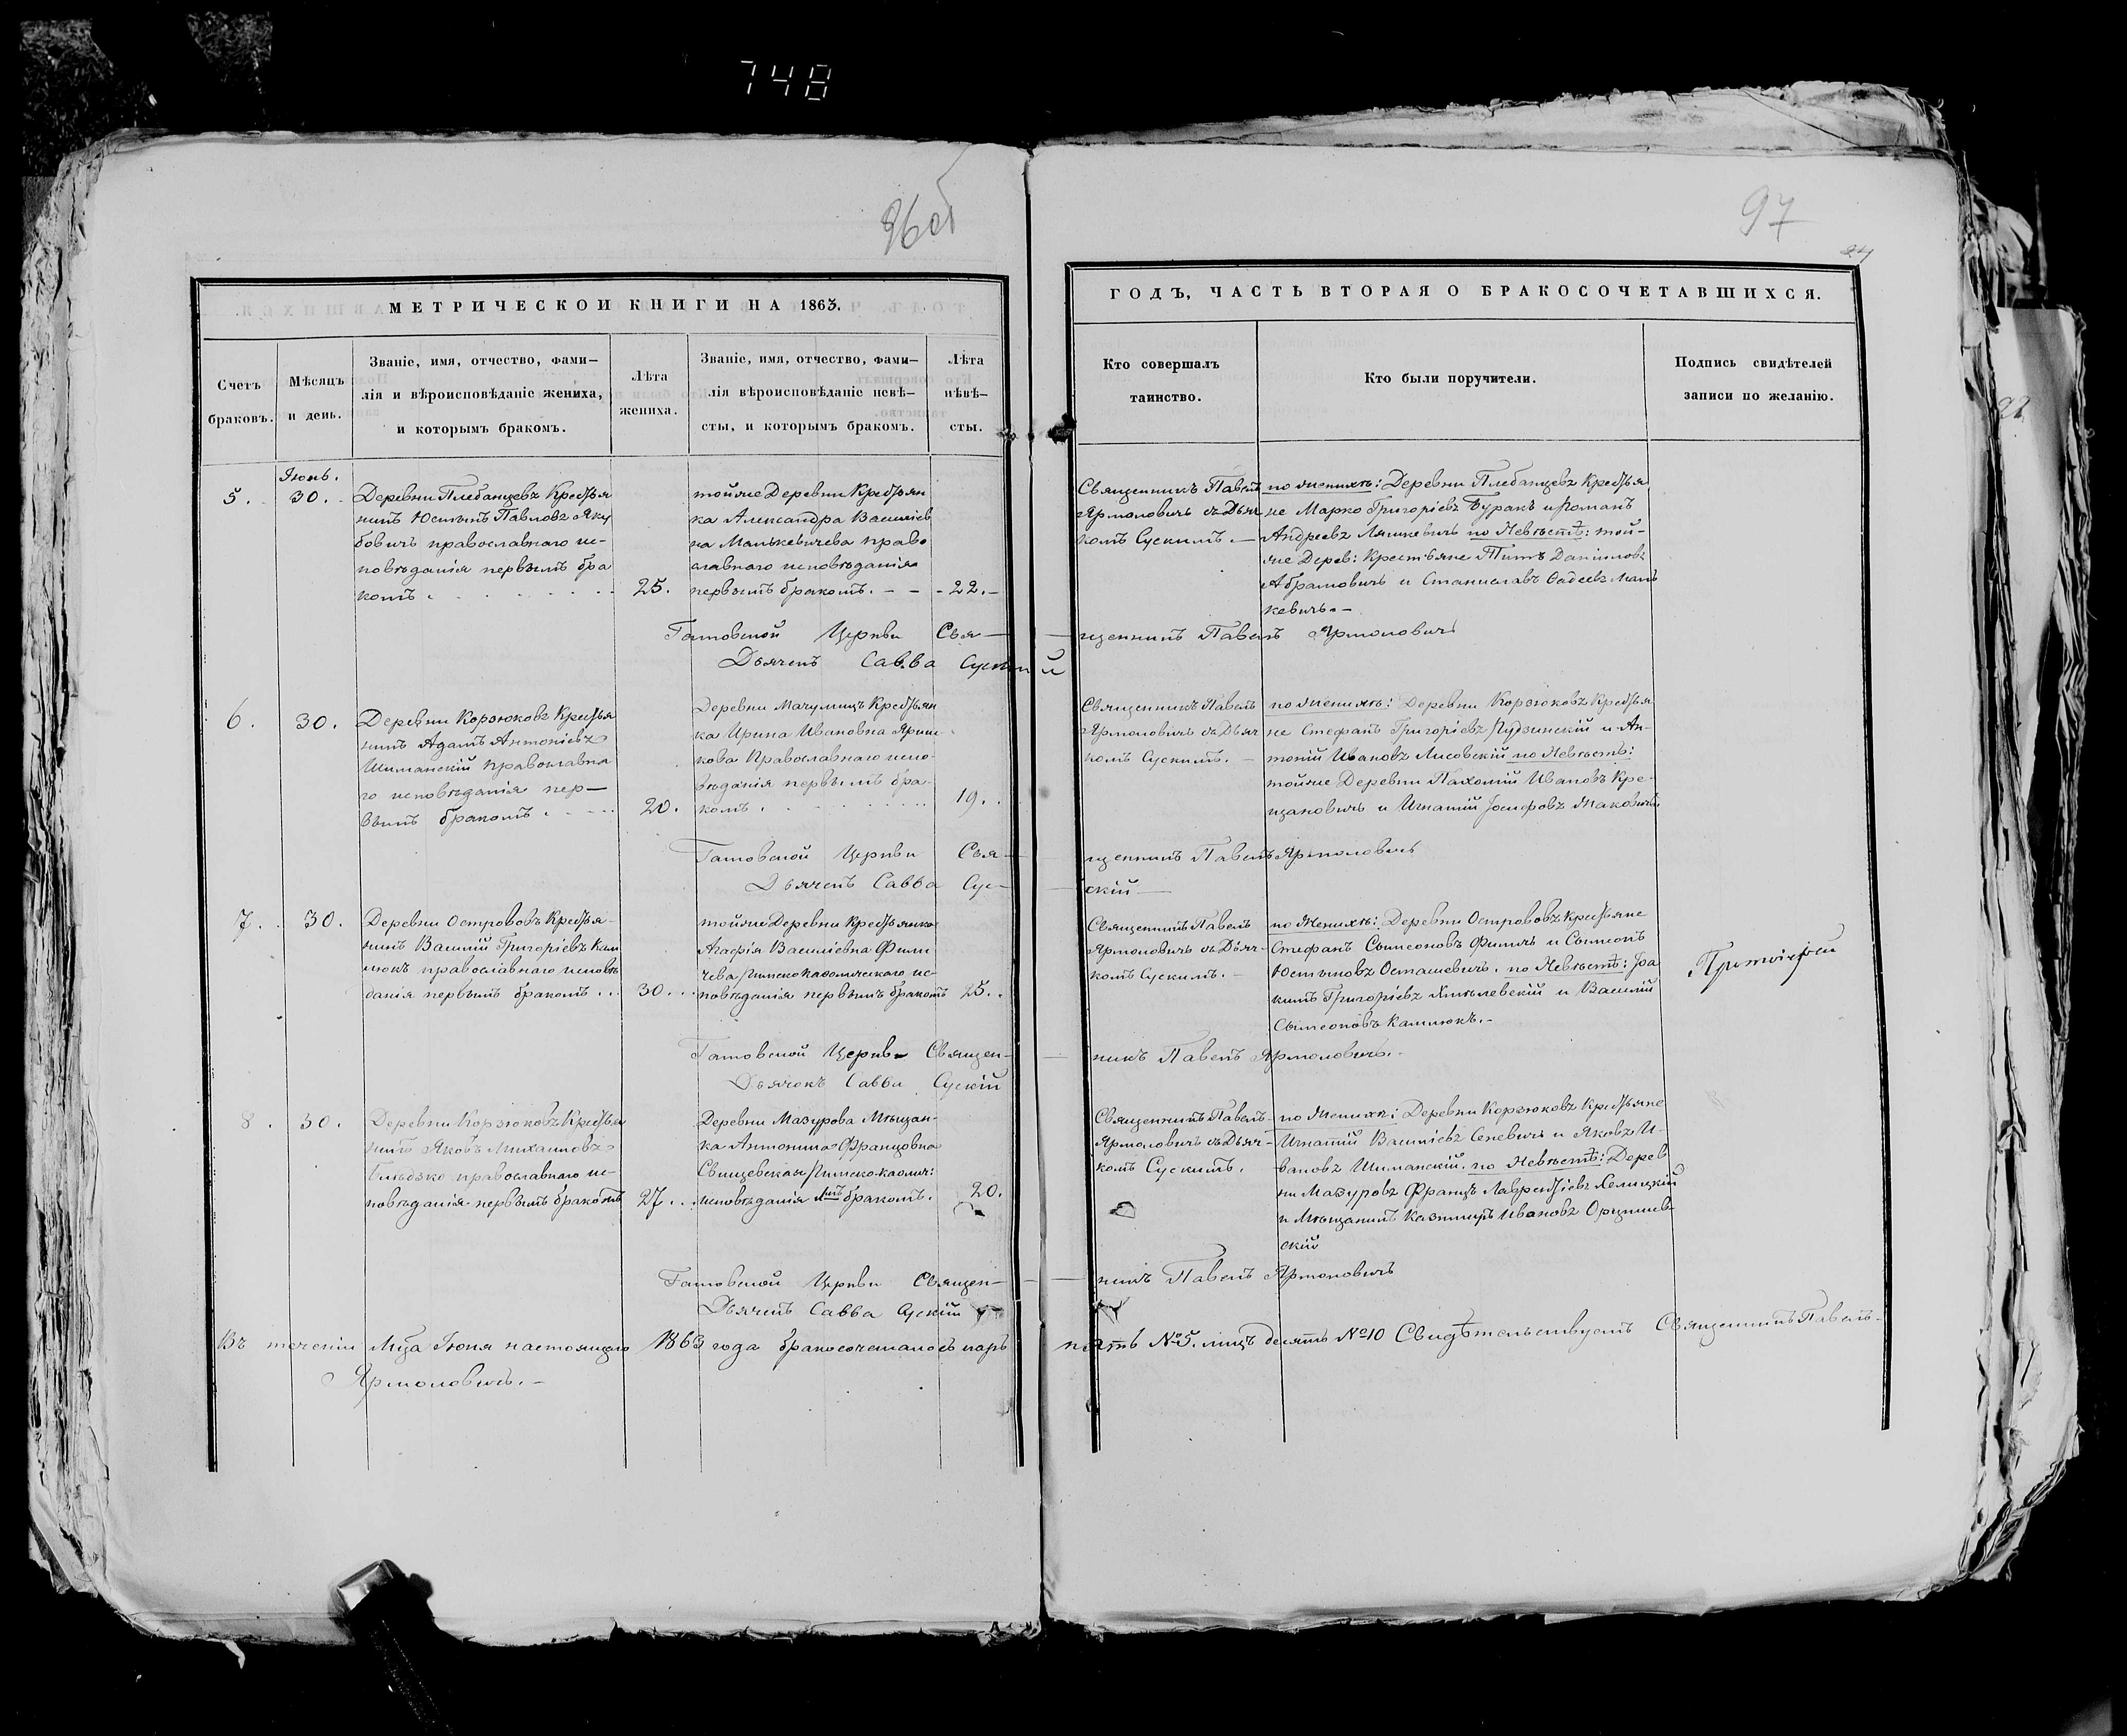 748
96об
97
МЕТРИЧЕСКОЙ КНИГИ НА 1863.
ГОДЪ, ЧАСТЬ ВТОРАЯ О БРАКОСОЧЕТАВШИХСЯ.
Счетъ
браковъ.
Мѣсяцъ
и день.
Званіе, имя, отчество, фами-
лія и вѣроисповѣданіе жениха,
и которымъ бракомъ.
Лѣта
жениха.
Званіе, имя, отчество, фами-
лія вѣроисповѣданіе невѣ-
сты, и которымъ бракомъ.
Лѣта
нѣвѣ-
сты.
Кто совершалъ
таинство.
Кто были поручители.
Подпись свидѣтелей
записи по желанію.
5.
Іюнь.
30.
Деревни Плебанцевъ Крестья
нинъ Юстынъ Павловъ Яку
бовичъ православнаго ис-
повѣданія первымъ бра
комъ
25.
тойже Деревни Крестьян
ка Александра Василіев
на Малькевичева право
славнаго исповѣданія
первымъ бракомъ.
22.
Священникъ Павелъ
Ярмоловичъ съ Дьяч
комъ Сускимъ.
по женихѣ: Деревни Плебанцевъ Крестья
не Марко Григоріевъ Буракъ и Романъ
Андреевъ Ляшкевичъ по Невѣстѣ: той-
же Дерев: Крестьяне Титъ Даниловъ
Абрамовичъ и Станиславъ Фадеевъ Маль
кевичъ.
Гатовской Церкви Свя-щенникъ Павелъ Ярмоловичъ
Дьячекъ Савва Сускій
6.
30.
Деревни Корзюковъ Крестья
нинъ Адамъ Антоніевъ
Шиманскій православна
го исповѣданія пер-
вымъ бракомъ
20.
Деревни Мачулищъ Крестьян
ка Ирина Ивановна Ярош
кова Православнаго испо-
вѣданія первымъ бра-
комъ
19.
Священникъ Павелъ
Ярмоловичъ съ Дьяч
комъ Сускимъ.
по женихѣ: Деревни Корзюковъ Крестья
не Стефанъ Григоріевъ Рудзинскій и Ан-
тоній Ивановъ Лисовскій по Невѣстѣ:
тойже Деревни Пахомій Ивановъ Кре-
щановичъ и Игнатій Іосифовъ Жаковичъ
Гатовской Церкви Свя-щенникъ Павелъ Ярмоловичъ
Дьячекъ Савва Сус-скій
7.
30.
Деревни Острововъ Крестья-
нинъ Василій Григоріевъ Кам
люкъ православнаго исповѣ
данія первымъ бракомъ
30.
тойже Деревни Крестьянка
Агафія Василіевна Фили
чева Римскокатолическаго ис-
повѣданія первымъ бракомъ
25.
Священникъ Павелъ
Ярмоловичъ съ Дьяч-
комъ Сускимъ.
по Женихѣ: Деревни Острововъ Крестьяне
Стефанъ Сымеоновъ Филичъ и Сымеонъ
Юстыновъ Осташевичъ. по Невѣстѣ: Іоа
кимъ Григоріевъ Хмѣлевскій и Василій
Сымеоновъ Камлюкъ.
Гатовской Церкви Священ-никъ Павелъ Ярмоловичъ.
Дьячокъ Савва Сускій
8.
30.
Деревни Корзюковъ Крестья
нинъ Яковъ Михаиловъ
православнаго ис-
повѣданія первымъ бракомъ
27.
Деревни Мазурова Мѣщан-
ка Антонина Францовна
Свищевская Римско-католич:
исповѣданія 1мъ бракомъ.
20.
Священникъ Павелъ
Ярмоловичъ съ Дьяч-
комъ Сускимъ.
по Женихѣ: Деревни Корзюковъ Крестьяне
Игнатій Василіевъ Сеневичъ и Яковъ И-
вановъ Шиманскій. по Невѣстѣ: Дерев
ни Мазуровъ Францъ Лаврентіевъ Хелмицкій
и Мѣщанинъ Казимиръ Ивановъ
скій
Гатовской Церкви Священ-никъ Павелъ Ярмоловичъ
Дьячекъ Савва Сускій
Въ теченіи Мца Іюня настоящаго 1863 года бракосочеталось паръ пять №5. лицъ десять №10 Свидѣтельствуетъ Священникъ Павелъ
Ярмоловичъ.